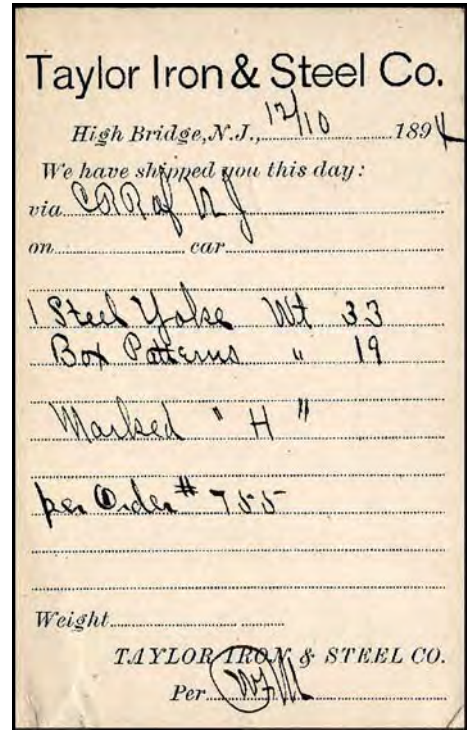 Taylor Iron & Steel Co.
High Bridge, N.J., 12/10 1894
We have shipped you this day:
via CRR of NJ
on car
1 Steel Yoke Wt 33
Box Patterns " 19
Marked "H"
per Order # 755
Weight
TAYLOR IRON & STEEL CO.
Per